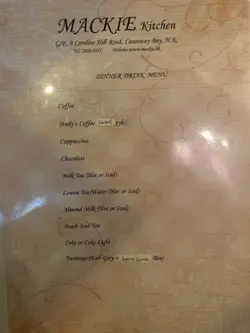 MACKIE Kitchen
G/F, 9 Caroline Hill Road, Causeway Bay, H.K.
Tel
DINNER DRINK MENU
Coffee
Study's Coffee (Sweet Style)
Cappuccino
Chocolate
Milk Tea (Hot or Iced)
Lemon Tea/Water (Hot or Iced)
Almond Milk (Hot or Iced)
Peach Iced Tea
Coke or Coke Light
Twinings (Earl Grey or Tea)